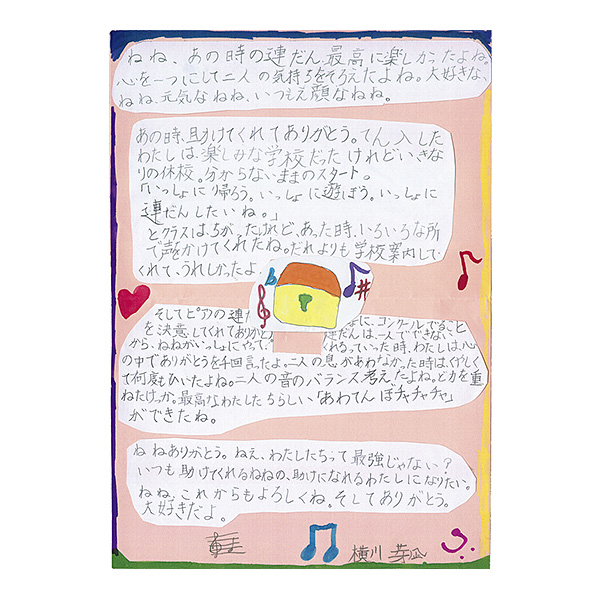 ねね、あの時の連だん最高に楽しかったよね。
心を一つにして二人の気持ちをそろえたよね。大好きな、
ねね、元気なねね、いつもえ顔なねね。
あの時、助けてくれてありがとう。てん入した
わたしは、楽しみな学校だったけれどいきな
りの休校。分からないままのスタート。
「いっしょに帰ろう。いっしょに遊ぼう。いっしょに
連だんしたいね。」
とクラスはちがったけれど、あった時、いろいろな所
で声をかけてくれたね。だれよりも学校案内して
くれて、うれしかったよ
そしてピアの連 よに、コンクールでること
を決意してくれてありがと 連だんは一人でできない
から、ねねがいっしょにやって くれるっていった時、わたしは心
の中でありがとうを千回言ったよ。二人の息があわなかった時は、くやしく
て何度もひいたよね。二人の音のバランス考えたよね。どカを重
ねたけっか。最高なわたしたちらしい「あわてんぼチャチャチャ」
ができたね。
ねねありがとう。ねえ、わたしたちって最強じゃない?
いつも助けてくれるねねの、助けになれるわたしになりたい。
ねね、これからもよろしくね。そしてありがとう。
大好きだよ。
横川 芽